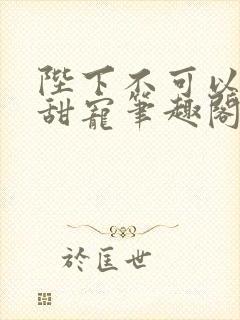 陛下不可以
甜寵筆趣閣
於匡世